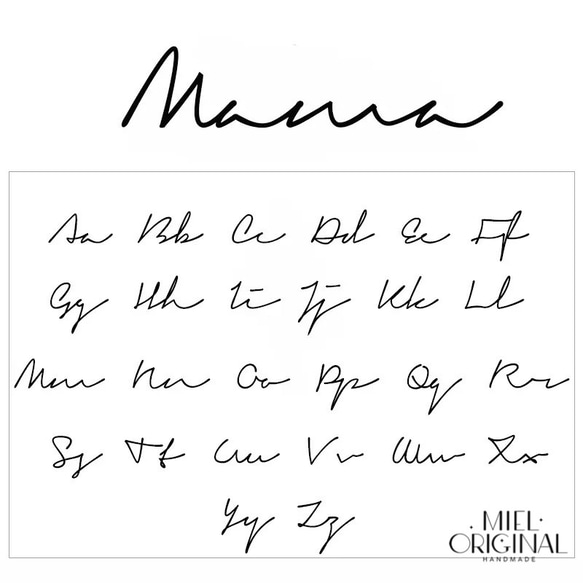 Mama
Aa Bb Cc Dd Ee Ff
Gg Hh Ii Jj Kk Ll
Mm Nn Oo Pp Qq Rr
Ss Tt Uu Vv Ww Xx
Yy Zz
· MIEL ·
ORIGINAL
HANDMADE